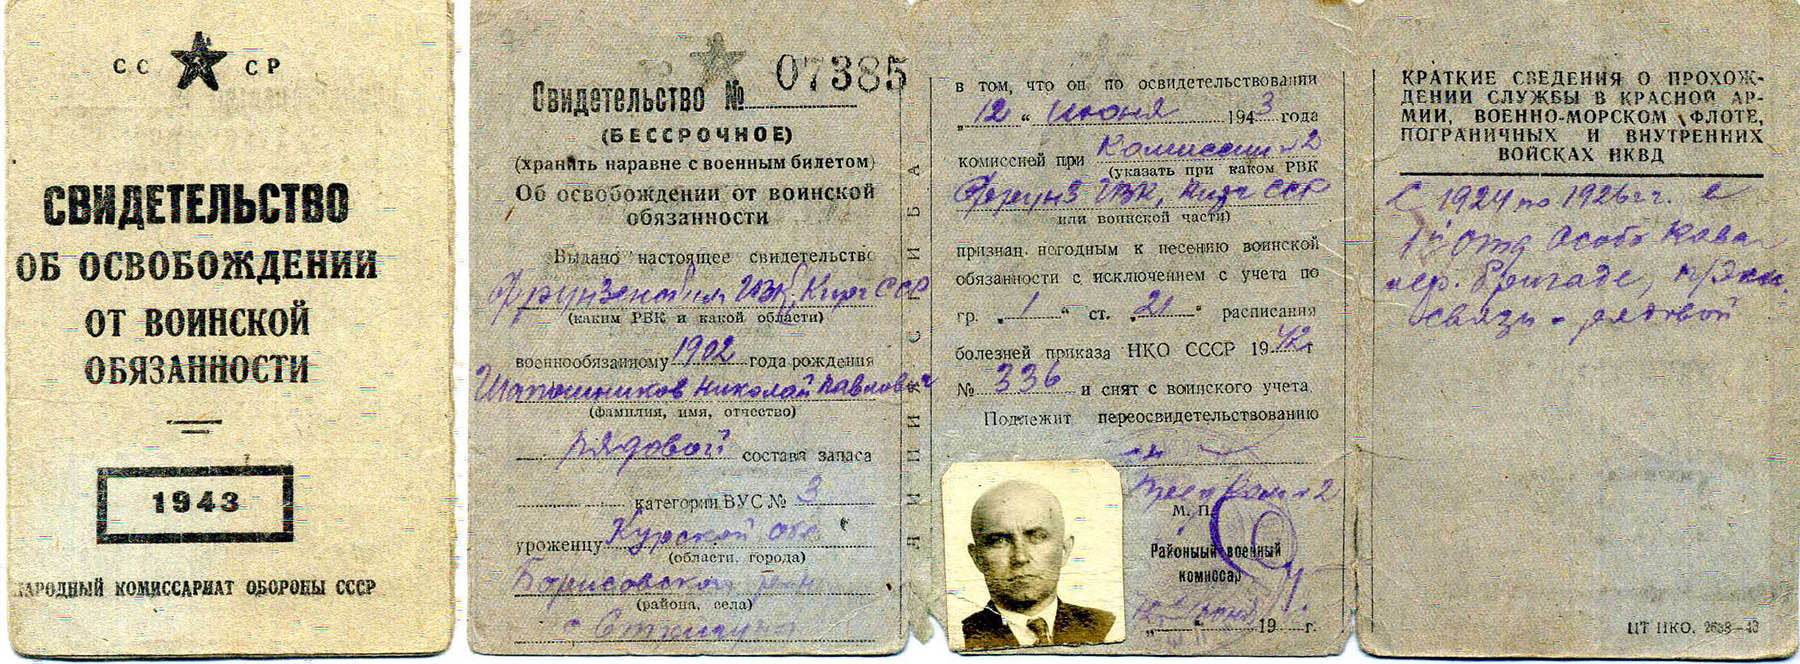 СС СР
СВИДЕТЕЛЬСТВО
ОБ ОСВОБОЖДЕНИИ
ОТ ВОИНСКОЙ
ОБЯЗАННОСТИ
1943
НАРОДНЫЙ КОМИССАРИАТ ОБОРОНЫ СССР
Свидетельство № 07385
(БЕССРОЧНОЕ)
(хранить наравне с военным билетом)
Об освобождении от воинской
обязанности
Выдано настоящее свидетельство
Фрунзенским ГВК, Кирг ССР
(каким РВК и какой области)
военнообязанному 1902 года рождения
Шапошников Николай Павлович
(фамилия, имя, отчество)
рядовой состава запаса
категории ВУС № 3
уроженцу Курской обл
(области, города)
Борисовского р-на
(района, села)
с.
ЛИНИЯ СГИБА
в том, что он по освидетельствовании
„12“ Июня 1943 года
комиссией при Комиссии №2
(указать при каком РВК
Фрунз ГВК, Кирг ССР
или воинской части)
признан негодным к несению воинской
обязанности с исключением с учета по
гр. „1“ ст. „21“ расписания
болезней приказа НКО СССР 1942 г
№ 336 и снят с воинского учета.
Подлежит переосвидетельствованию
М. П.
Районный военный
комиссар
„ “ 19 г.
КРАТКИЕ СВЕДЕНИЯ О ПРОХОЖ-
ДЕНИИ СЛУЖБЫ В КРАСНОЙ АР-
МИИ, ВОЕННО-МОРСКОМ ФЛОТЕ,
ПОГРАНИЧНЫХ И ВНУТРЕННИХ
ВОЙСКАХ НКВД
С 1924 по 1926 гг. в
Отд Особ. Кавал
бригаде,
связи - рядовой
ЦТ НКО. 2638—43